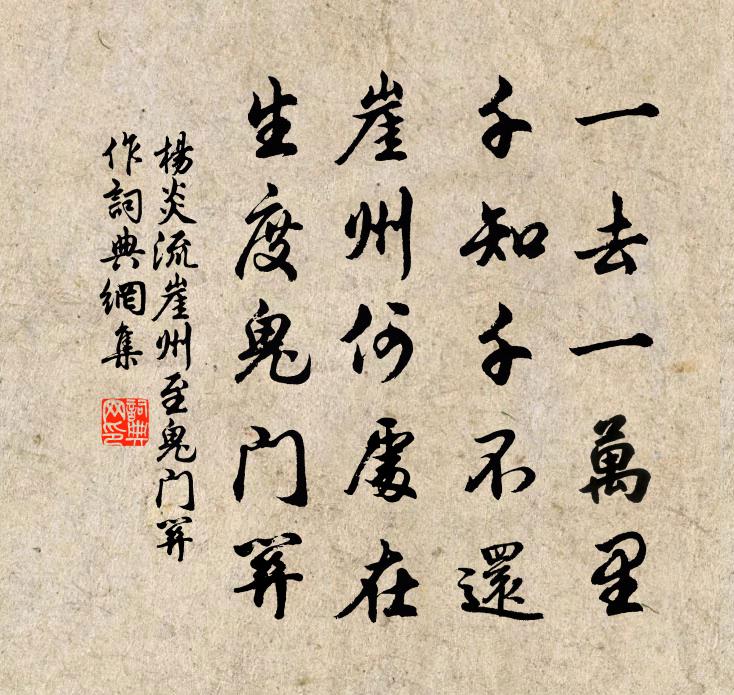 一去一萬里
千知千不還
崖州何處在
生度鬼门関
楊炎流崖州至鬼门関
作詞典網集
詞典网印